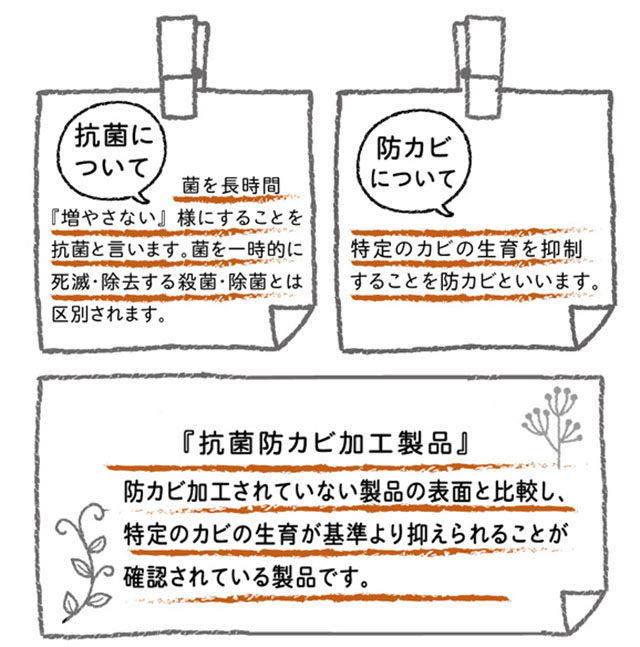 抗菌に
ついて
菌を長時間
『増やさない』様にすることを
抗菌と言います。菌を一時的に
死滅・除去する殺菌・除菌とは
区別されます。
防カビ
について
特定のカビの生育を抑制
することを防カビといいます。
『抗菌防カビ加工製品』
防カビ加工されていない製品の表面と比較し、
特定のカビの生育が基準より抑えられることが
確認されている製品です。